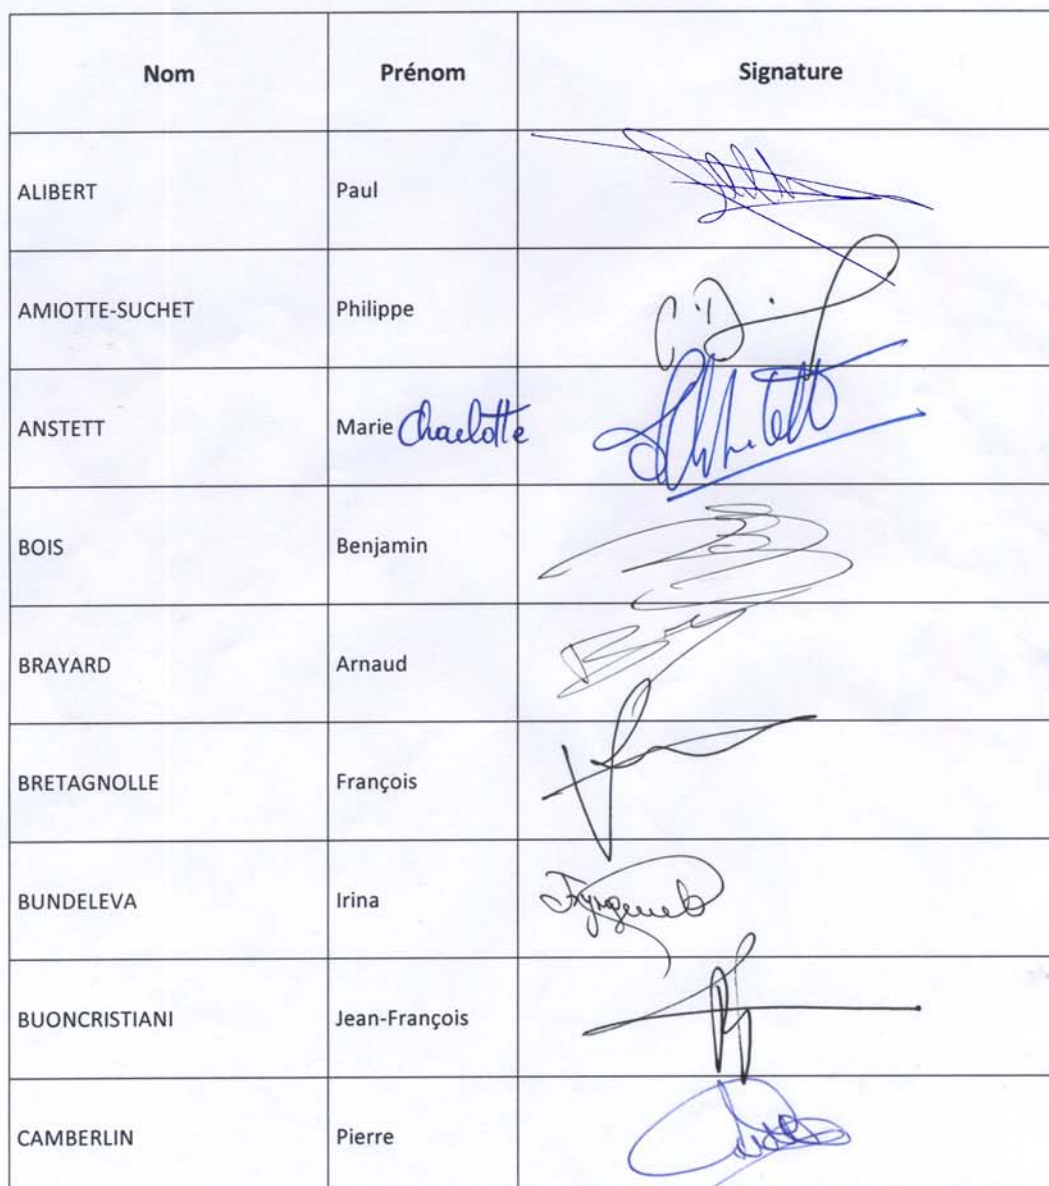 Nom Prénom Signature
ALIBERT Paul
AMIOTTE-SUCHET Philippe
ANSTETT Marie Charlotte
BOIS Benjamin
BRAYARD Arnaud
BRETAGNOLLE François
BUNDELEVA Irina
BUONCRISTIANI Jean-François
CAMBERLIN Pierre